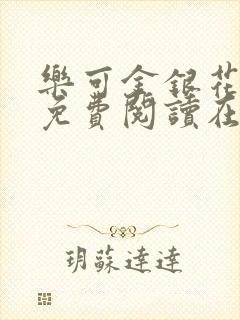 樂可金銀花
免費閱讀在
玥蘇達達